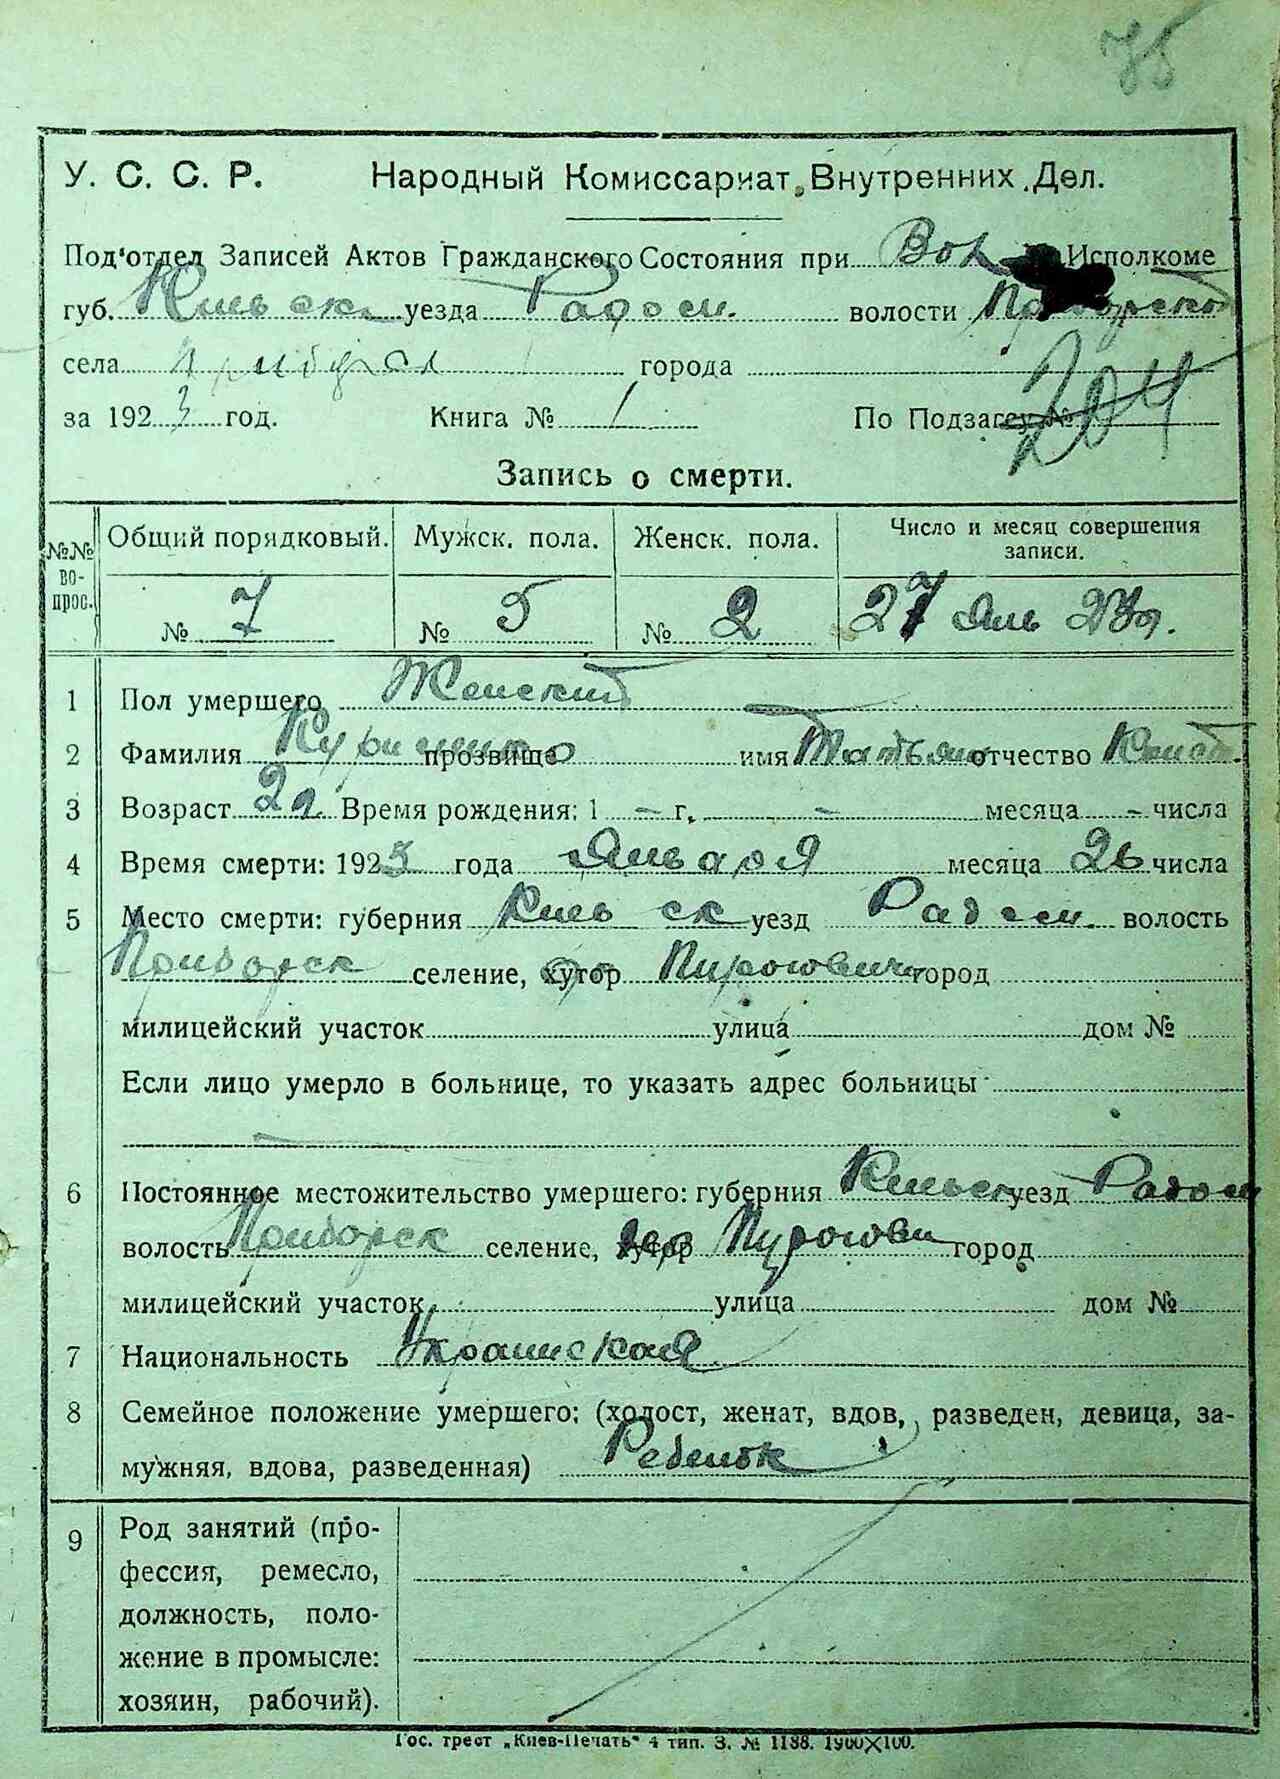 75
У. С. С. Р. Народный Комиссариат Внутренних Дел.
Под'отдел Записей Актов Гражданского Состояния при Вол Исполкоме
губ. Киевск уезда Радом. волости
села города
за 1923 год. Книга № 1 По Подзагсу № 204
Запись о смерти.
№№ вопрос. Общий порядковый. Мужск. пола. Женск. пола. Число и месяц совершения записи.
№ 7 № 5 № 2 27 Янв 23г.
1 Пол умершего Женский
2 Фамилия прозвище имя Татьяна отчество
3 Возраст 2 г. Время рождения: 1 – г. – месяца – числа
4 Время смерти: 1923 года Января месяца 26 числа
5 Место смерти: губерния Киевск уезд Радом. волость
Приборск селение, хутор Пироговичи город
милицейский участок улица дом №
Если лицо умерло в больнице, то указать адрес больницы
6 Постоянное местожительство умершего: губерния Киевск уезд Радом
волость Приборск селение, хутор Пирогови город
милицейский участок улица дом №
7 Национальность Украинская
8 Семейное положение умершего: (холост, женат, вдов, разведен, девица, за-
мужняя, вдова, разведенная) Ребенок
9 Род занятий (про-
фессия, ремесло,
должность, поло-
жение в промысле:
хозяин, рабочий).
Гос. трест „Киев-Печать“ 4 тип. З. № 1188. 1900X100.